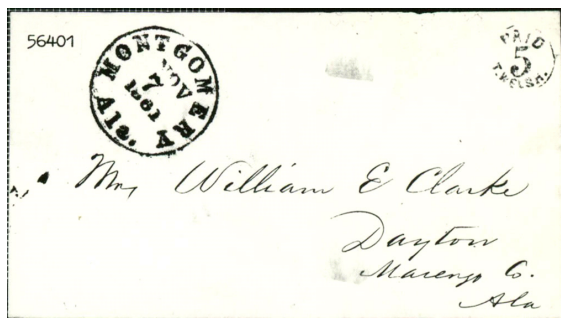 56401
MONTGOMERY Ala.
NOV
7
1861
PAID
5
T. WELSH.
Mrs William E Clarke
Dayton
Marengo Co.
Ala